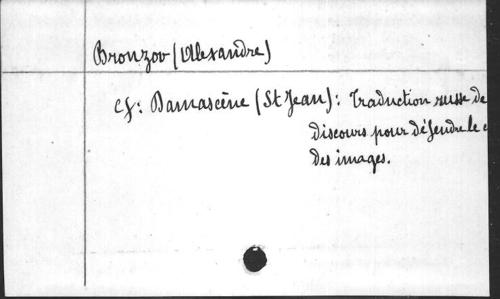 Bronzov (Alexandre)
cf: Damascène (St Jean): Traduction russe de
discours pour défendre le c
des images.